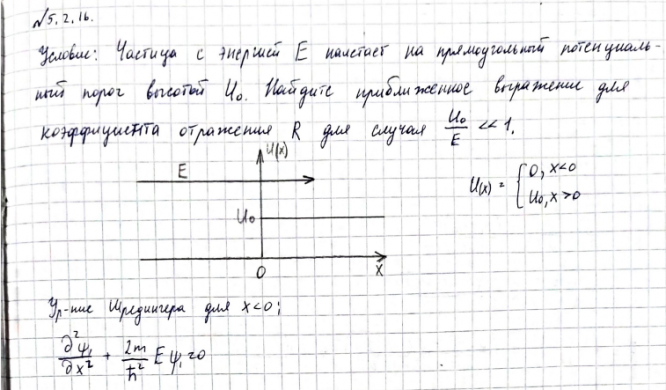 №5.2.16.
Условие: Частица с энергией E налетает на прямоугольный потенциаль-
ный порог высотой U₀. Найдите приближенное выражение для
коэффициента отражения R для случая U₀/E ≪ 1.
U(x)
E
U(x) = { 0, x<0
U₀, x>0
U₀
0
x
Ур-ние Шредингера для x<0:
∂²ψ₁/∂x² + 2m/ħ² E ψ₁ = 0